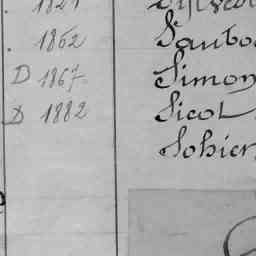 1821
. 1862 Saubo
D 1867 Simon
D 1882 Sicot
Sohier